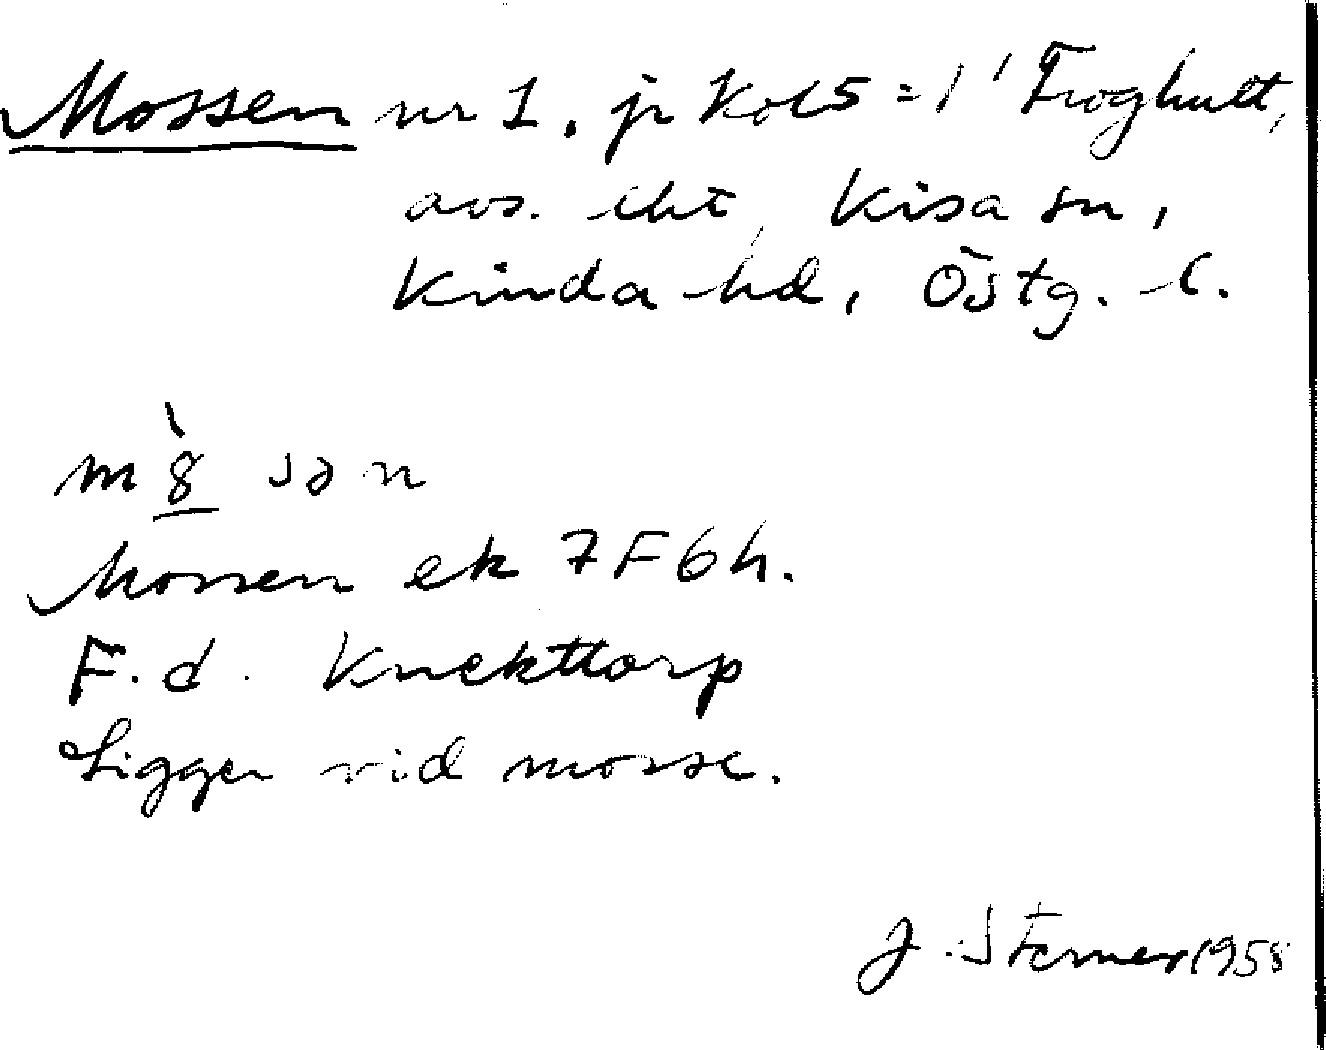 Mossen nr 1, jr Kols=1' Froghult,
avs. cht, Kisa sn,
Kinda hd, Östg. l.
m8̀ sən
Mossen ek 7F6h.
F.d. Knekttorp
Ligger vid mosse.
J. Sterner 1958